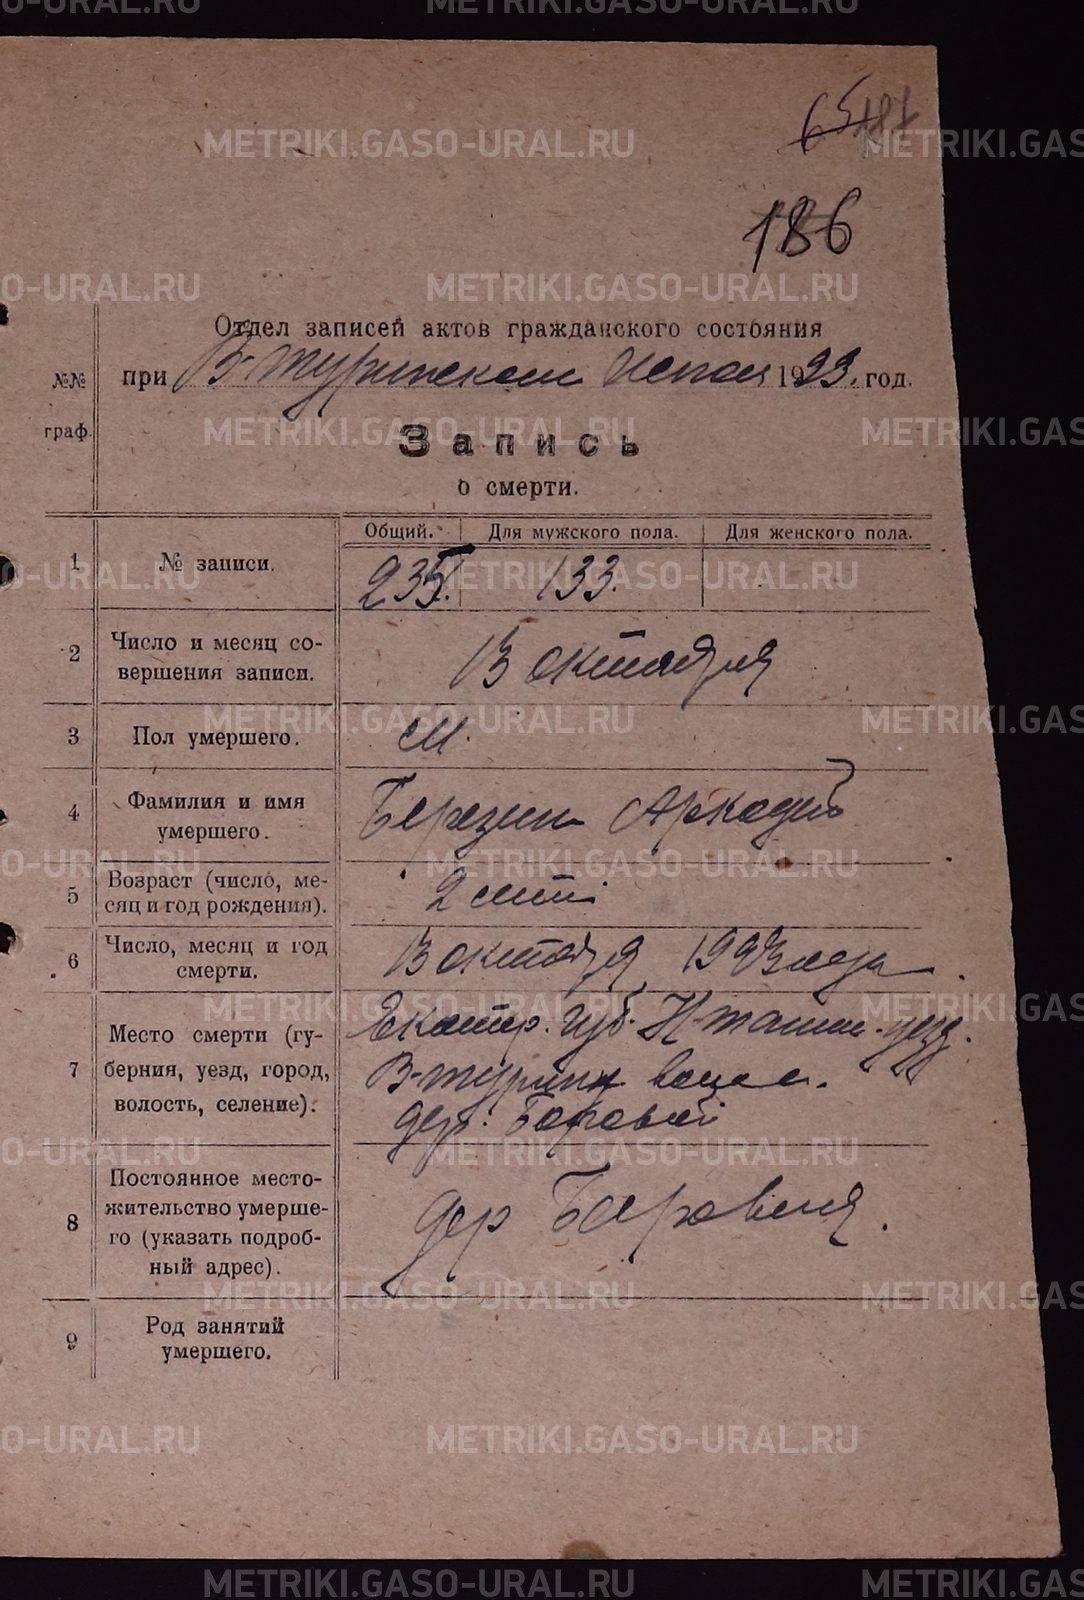 65 187
186
Отдел записей актов гражданского состояния
при В-Туринском Испол 1923. год.
№№
граф.
Запись
о смерти.
Общий. Для мужского пола. Для женского пола.
1 № записи. 235. 133.
2 Число и месяц со-
вершения записи.
13 октября
3 Пол умершего. М.
4 Фамилия и имя
умершего.
Березин Аркадий
5 Возраст (число, ме-
сяц и год рождения).
2 лет
6 Число, месяц и год
смерти.
13 октября 1923 года
7 Место смерти (гу-
берния, уезд, город,
волость, селение).
Екатер. губ. Н-Тагил. уезд.
В-Турин
дер. Боровой
8 Постоянное место-
жительство умерше-
го (указать подроб-
ный адрес).
дер Боровая.
9 Род занятий
умершего.
METRIKI.GASO-URAL.RU